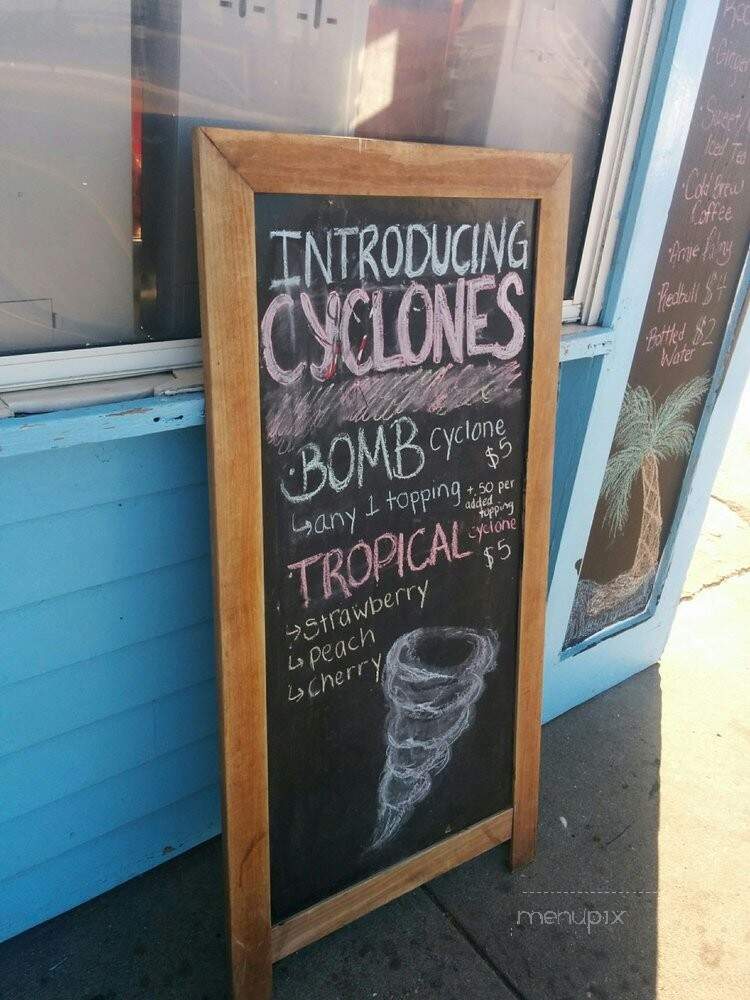 INTRODUCING
CYCLONES
BOMB cyclone
$5
↳any 1 topping +.50 per
added
topping
TROPICAL cyclone
$5
↳strawberry
↳peach
↳cherry
Ginger
Sweet
Iced Tea
•Cold Brew
Coffee
•Arnie
Redbull $4
•Bottled $2
Water
menupix